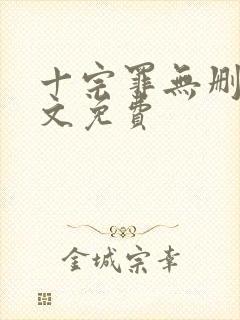 十宗罪無删
文免費
金城宗幸